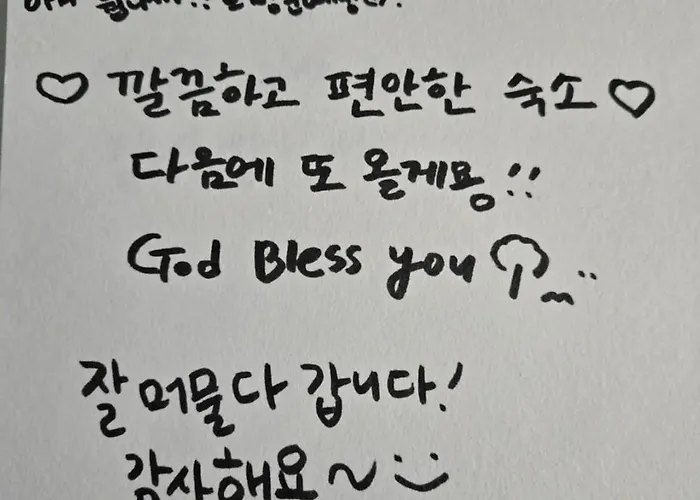 ♡ 깔끔하고 편안한 숙소 ♡
다음에 또 올게용!!
God Bless you
잘 머물다 갑니다!
감사해요~